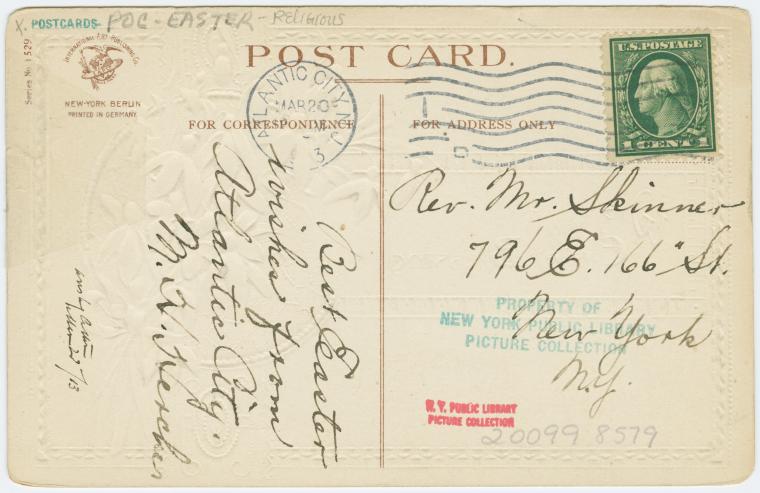 X. POSTCARDS POC - EASTER - Religious
Series No. 1529
INTERNATIONAL ART PUBLISHING Co.
NEW-YORK BERLIN
PRINTED IN GERMANY
POST CARD.
ATLANTIC CITY, N.J.
MAR 20
3
U.S. POSTAGE
1 CENT 1
FOR CORRESPONDENCE
FOR ADDRESS ONLY
Best Easter
wishes from
Atlantic City.
Rev. Mr. Skinner
796 E. 166" St.
New York
N.Y.
PROPERTY OF
NEW YORK PUBLIC LIBRARY
PICTURE COLLECTION
N. Y. PUBLIC LIBRARY
PICTURE COLLECTION
20099 8579